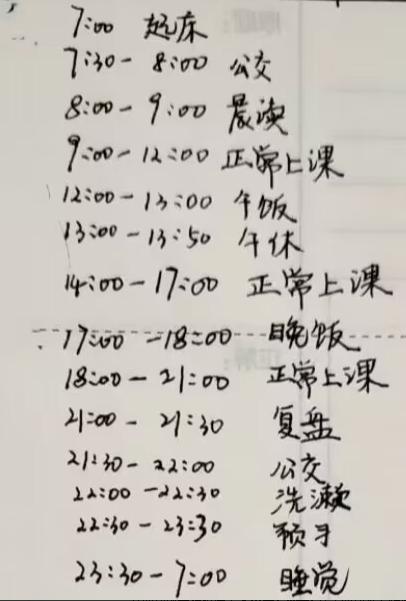 7:00 起床
7:30 - 8:00 公交
8:00 - 9:00 晨读
9:00 - 12:00 正常上课
12:00 - 13:00 午饭
13:00 - 13:50 午休
14:00 - 17:00 正常上课
17:00 - 18:00 晚饭
18:00 - 21:00 正常上课
21:00 - 21:30 复盘
21:30 - 22:00 公交
22:00 - 22:30 洗漱
22:30 - 23:30 预习
23:30 - 7:00 睡觉